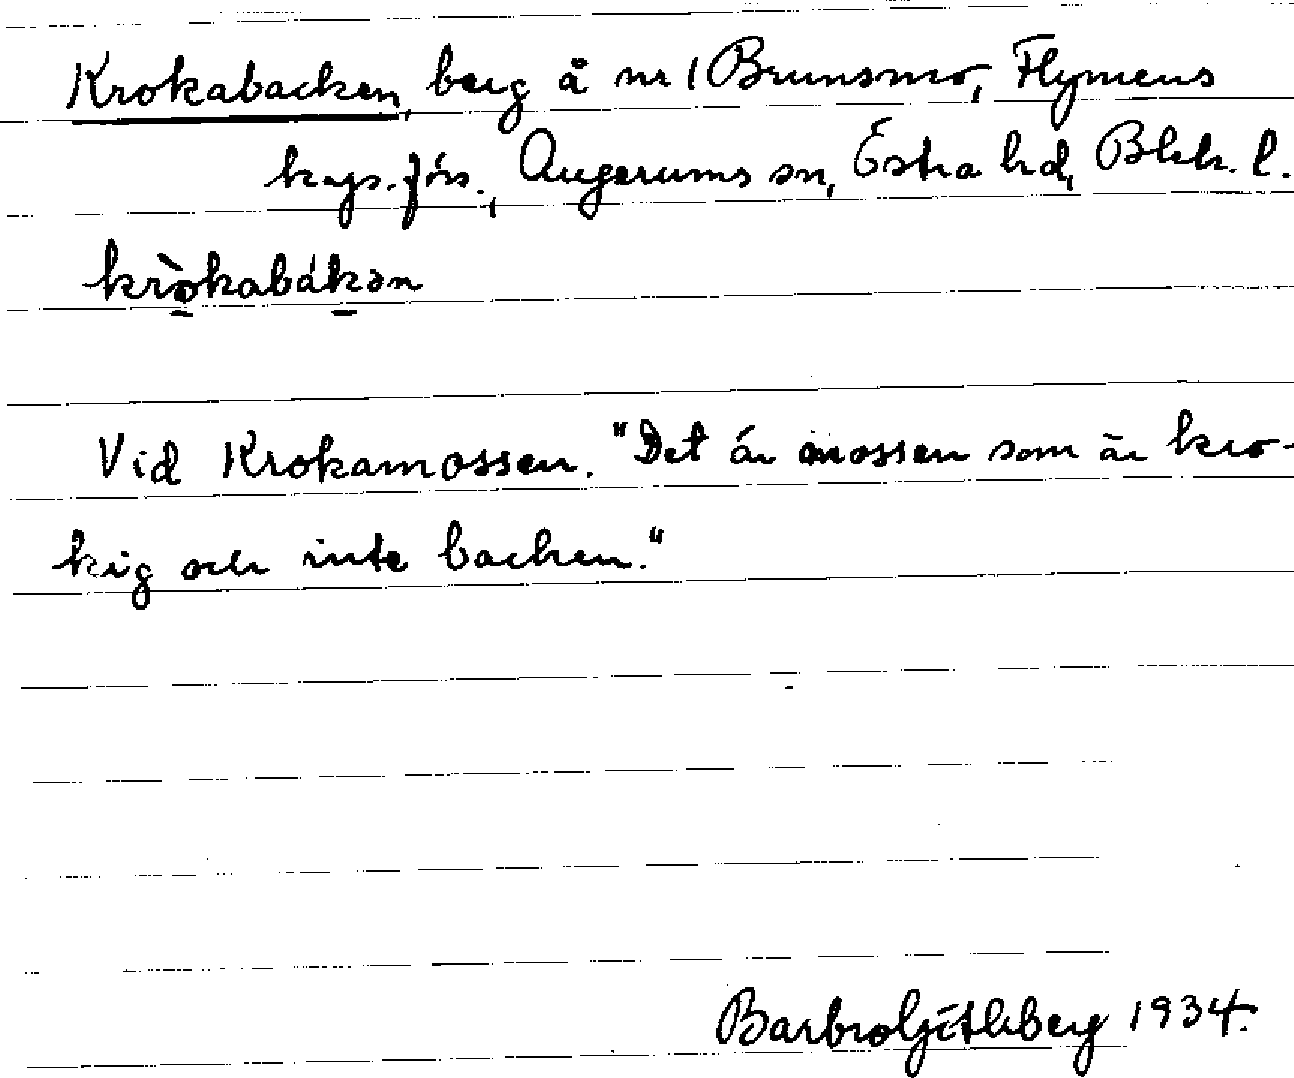 Krokabacken, berg å nr 1 Brunsmo, Flymens
kaps. förs., Augerums sn, Östra hd, Blek. l.
kròkabákən
Vid Krokamossen. "Det är mossen som är kro-
kig och inte backen."
Barbro 1934.